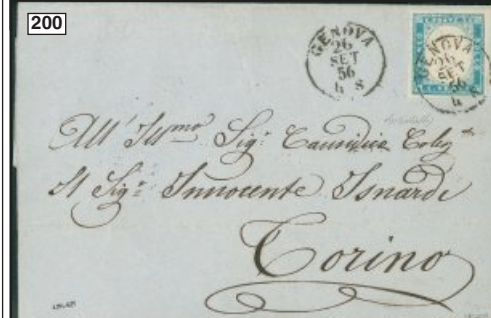 200
GENOVA
26
SET
56
4 S
GENOVA
26
SET
56
4 S
All' Ill.mo Sig.r Causidico Coleg.to
Il Sig.r Innocente Isnardi
Torino